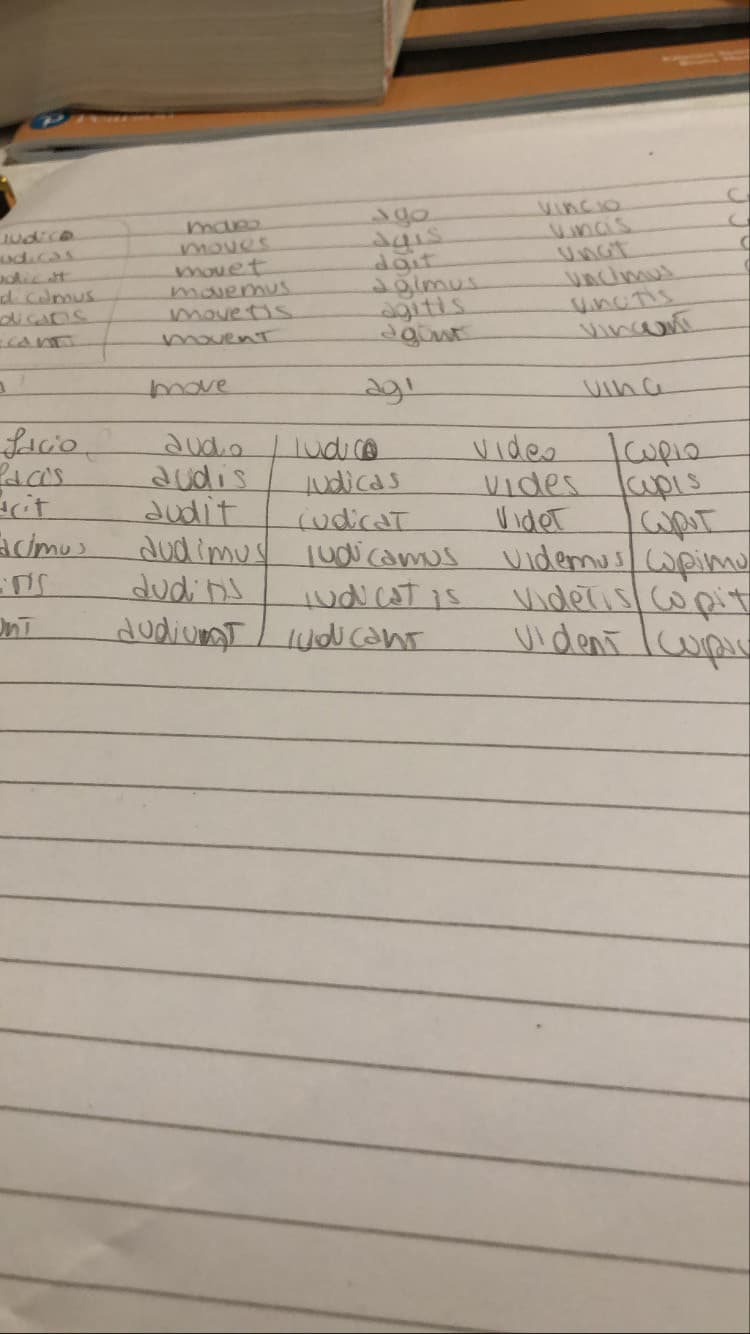 iudico moveo ago vincio
udicas moves agis vincis
udicat movet agit vincit
dicamus movemus agimus vincimus
dicatis movetis agitis vincitis
cant movent agunt
move agi vinci
facio audio iudico video cupio
facis audis iudicas vides cupis
acit audit iudicat videt cupit
acimus audimus iudicamus videmus cupimu
itis auditis iudicatis videtis cupit
unt audiunt iudicant vident cupiu